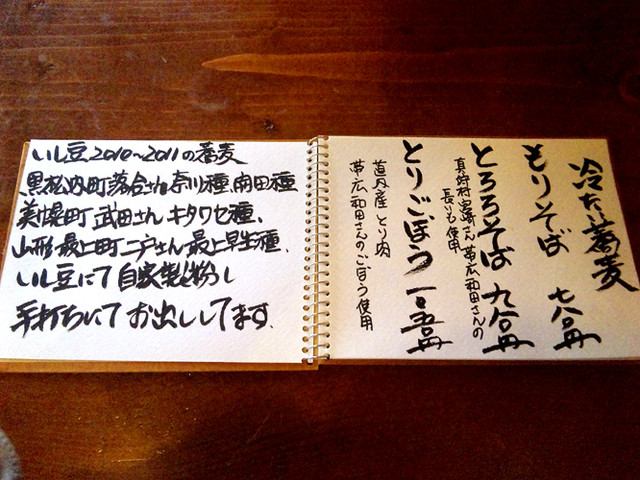 いし豆2010~2011の蕎麦
黒松内町落合さん奈川種、南田種
美幌町 武田さん キタワセ種、
山形 最上町 二戸さん 最上早生種.
いし豆にて 自家製粉し
手打ちにて お出ししてます.
冷たい蕎麦
もりそば 七八〇円
とろろそば 九八〇円
真狩村 宮崎さん 帯広 和田さんの
長いも使用
とりごぼう 一〇五〇円
道内産 とり肉
帯広 和田さんのごぼう使用